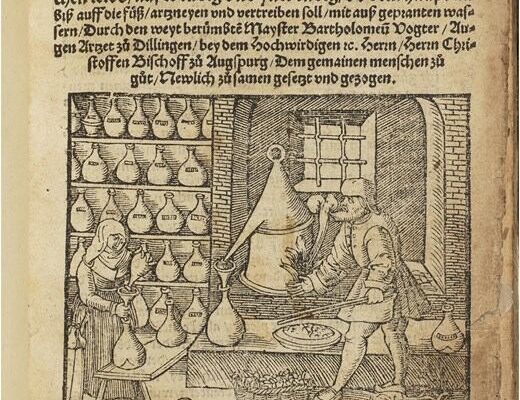 biß auff die füß / artzneyen vnd vertreiben soll / mit auß gepranten was-
sern / Durch den weyt berümbtẽ Mayster Bartholomeũ Vogter / Au-
gen Artzet zů Dillingen / bey dem Hochwirdigen ꝛc. Herrn / Herrn Chri-
stoffen Bischoff zů Augspurg / Dem gemainen menschen zů
gůt / Newlich zůsamen gesetzt vnd gezogen.